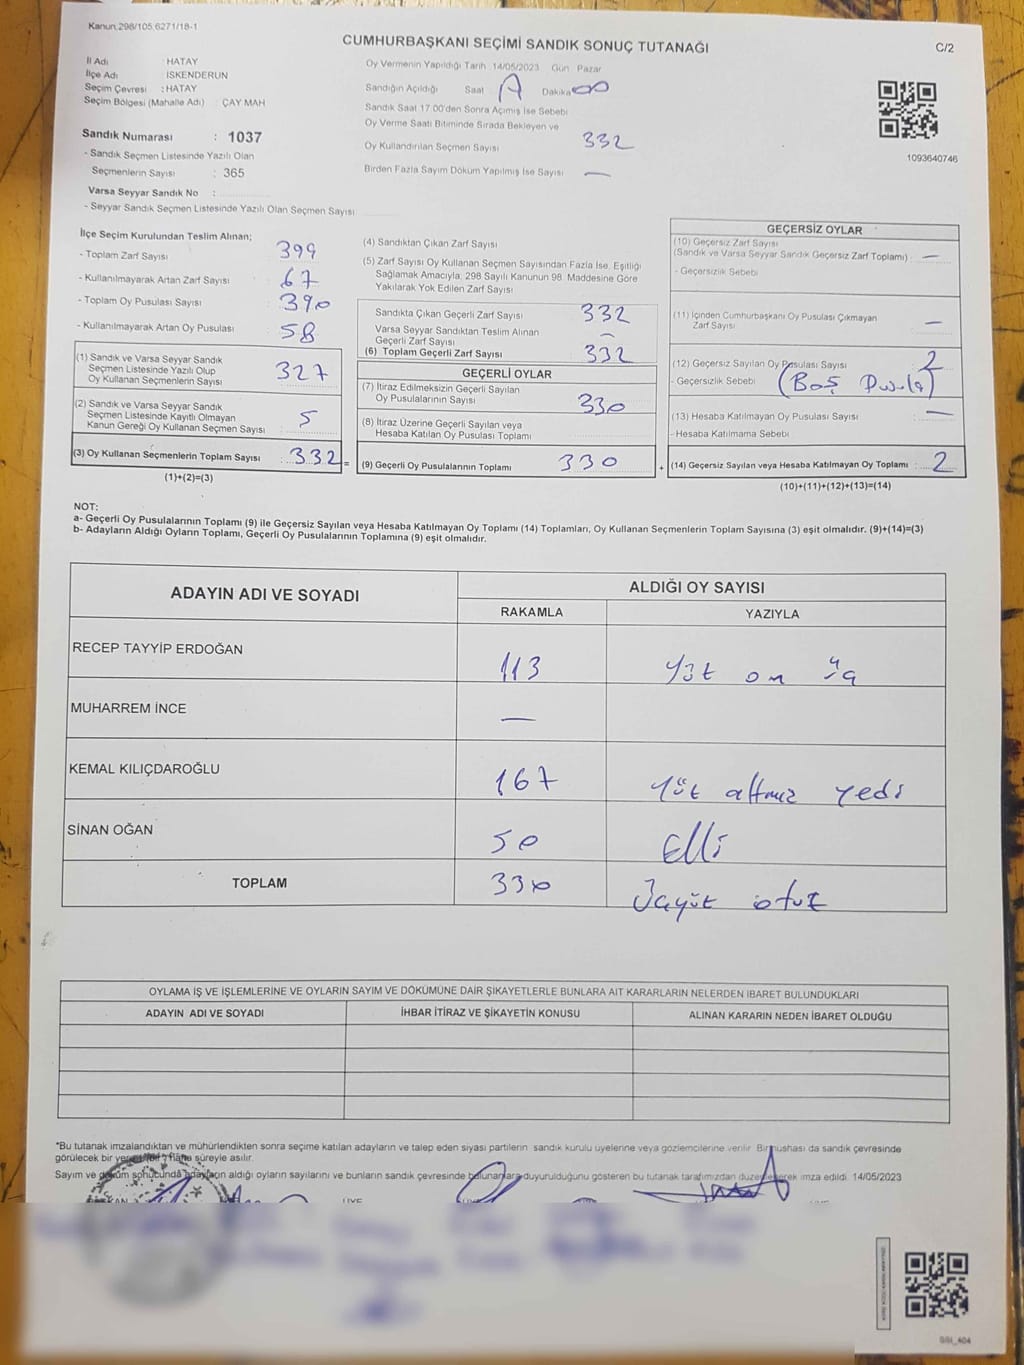 Kanun.298/105.6271/18-1
CUMHURBAŞKANI SEÇİMİ SANDIK SONUÇ TUTANAĞI
C/2
İl Adı : HATAY
İlçe Adı : İSKENDERUN
Seçim Çevresi : HATAY
Seçim Bölgesi (Mahalle Adı) : ÇAY MAH
Sandık Numarası : 1037
- Sandık Seçmen Listesinde Yazılı Olan
Seçmenlerin Sayısı : 365
Varsa Seyyar Sandık No :
- Seyyar Sandık Seçmen Listesinde Yazılı Olan Seçmen Sayısı
Oy Vermenin Yapıldığı Tarih 14/05/2023 Gün Pazar
Sandığın Açıldığı Saat Dakika 00
Sandık Saat 17.00'den Sonra Açımış İse Sebebi
Oy Verme Saati Bitiminde Sırada Bekleyen ve
Oy Kullandırılan Seçmen Sayısı 332
Birden Fazla Sayım Döküm Yapılmış İse Sayısı —
1093640746
İlçe Seçim Kurulundan Teslim Alınan;
- Toplam Zarf Sayısı 399
- Kullanılmayarak Artan Zarf Sayısı 67
- Toplam Oy Pusulası Sayısı 390
- Kullanılmayarak Artan Oy Pusulası 58
(1) Sandık ve Varsa Seyyar Sandık
Seçmen Listesinde Yazılı Olup
Oy Kullanan Seçmenlerin Sayısı 327
(2) Sandık ve Varsa Seyyar Sandık
Seçmen Listesinde Kayıtlı Olmayan
Kanun Gereği Oy Kullanan Seçmen Sayısı 5
(3) Oy Kullanan Seçmenlerin Toplam Sayısı : 332 =
(1)+(2)=(3)
(4) Sandıktan Çıkan Zarf Sayısı
(5) Zarf Sayısı Oy Kullanan Seçmen Sayısından Fazla İse, Eşitliği
Sağlamak Amacıyla; 298 Sayılı Kanunun 98. Maddesine Göre
Yakılarak Yok Edilen Zarf Sayısı
Sandıkta Çıkan Geçerli Zarf Sayısı 332
Varsa Seyyar Sandıktan Teslim Alınan
Geçerli Zarf Sayısı —
(6) Toplam Geçerli Zarf Sayısı 332
GEÇERLİ OYLAR
(7) İtiraz Edilmeksizin Geçerli Sayılan
Oy Pusulalarının Sayısı 330
(8) İtiraz Üzerine Geçerli Sayılan veya
Hesaba Katılan Oy Pusulası Toplamı
(9) Geçerli Oy Pusulalarının Toplamı 330 +
GEÇERSİZ OYLAR
(10) Geçersiz Zarf Sayısı
(Sandık ve Varsa Seyyar Sandık Geçersiz Zarf Toplamı) —
- Geçersizlik Sebebi
(11) İçinden Cumhurbaşkanı Oy Pusulası Çıkmayan
Zarf Sayısı —
(12) Geçersiz Sayılan Oy Pusulası Sayısı 2
- Geçersizlik Sebebi (Boş Pusula)
(13) Hesaba Katılmayan Oy Pusulası Sayısı —
- Hesaba Katılmama Sebebi
(14) Geçersiz Sayılan veya Hesaba Katılmayan Oy Toplamı : 2
(10)+(11)+(12)+(13)=(14)
NOT:
a- Geçerli Oy Pusulalarının Toplamı (9) ile Geçersiz Sayılan veya Hesaba Katılmayan Oy Toplamı (14) Toplamları, Oy Kullanan Seçmenlerin Toplam Sayısına (3) eşit olmalıdır. (9)+(14)=(3)
b- Adayların Aldığı Oyların Toplamı, Geçerli Oy Pusulalarının Toplamına (9) eşit olmalıdır.
ADAYIN ADI VE SOYADI
ALDIĞI OY SAYISI
RAKAMLA YAZIYLA
RECEP TAYYİP ERDOĞAN 113 Yüz on üç
MUHARREM İNCE —
KEMAL KILIÇDAROĞLU 167 Yüz altmız yedi
SİNAN OĞAN 50 Elli
TOPLAM 330 Üçyüz otuz
OYLAMA İŞ VE İŞLEMLERİNE VE OYLARIN SAYIM VE DÖKÜMÜNE DAİR ŞİKAYETLERLE BUNLARA AİT KARARLARIN NELERDEN İBARET BULUNDUKLARI
ADAYIN ADI VE SOYADI İHBAR İTİRAZ VE ŞİKAYETİN KONUSU ALINAN KARARIN NEDEN İBARET OLDUĞU
*Bu tutanak imzalandıktan ve mühürlendikten sonra seçime katılan adayların ve talep eden siyasi partilerin sandık kurulu üyelerine veya gözlemcilerine verilir. Bir nüshası da sandık çevresinde
görülecek bir yere bir hafta süreyle asılır.
Sayım ve döküm sonucunda adayların aldığı oyların sayılarını ve bunların sandık çevresinde bulunanlara duyurulduğunu gösteren bu tutanak tarafımızdan düzenlenerek imza edildi. 14/05/2023